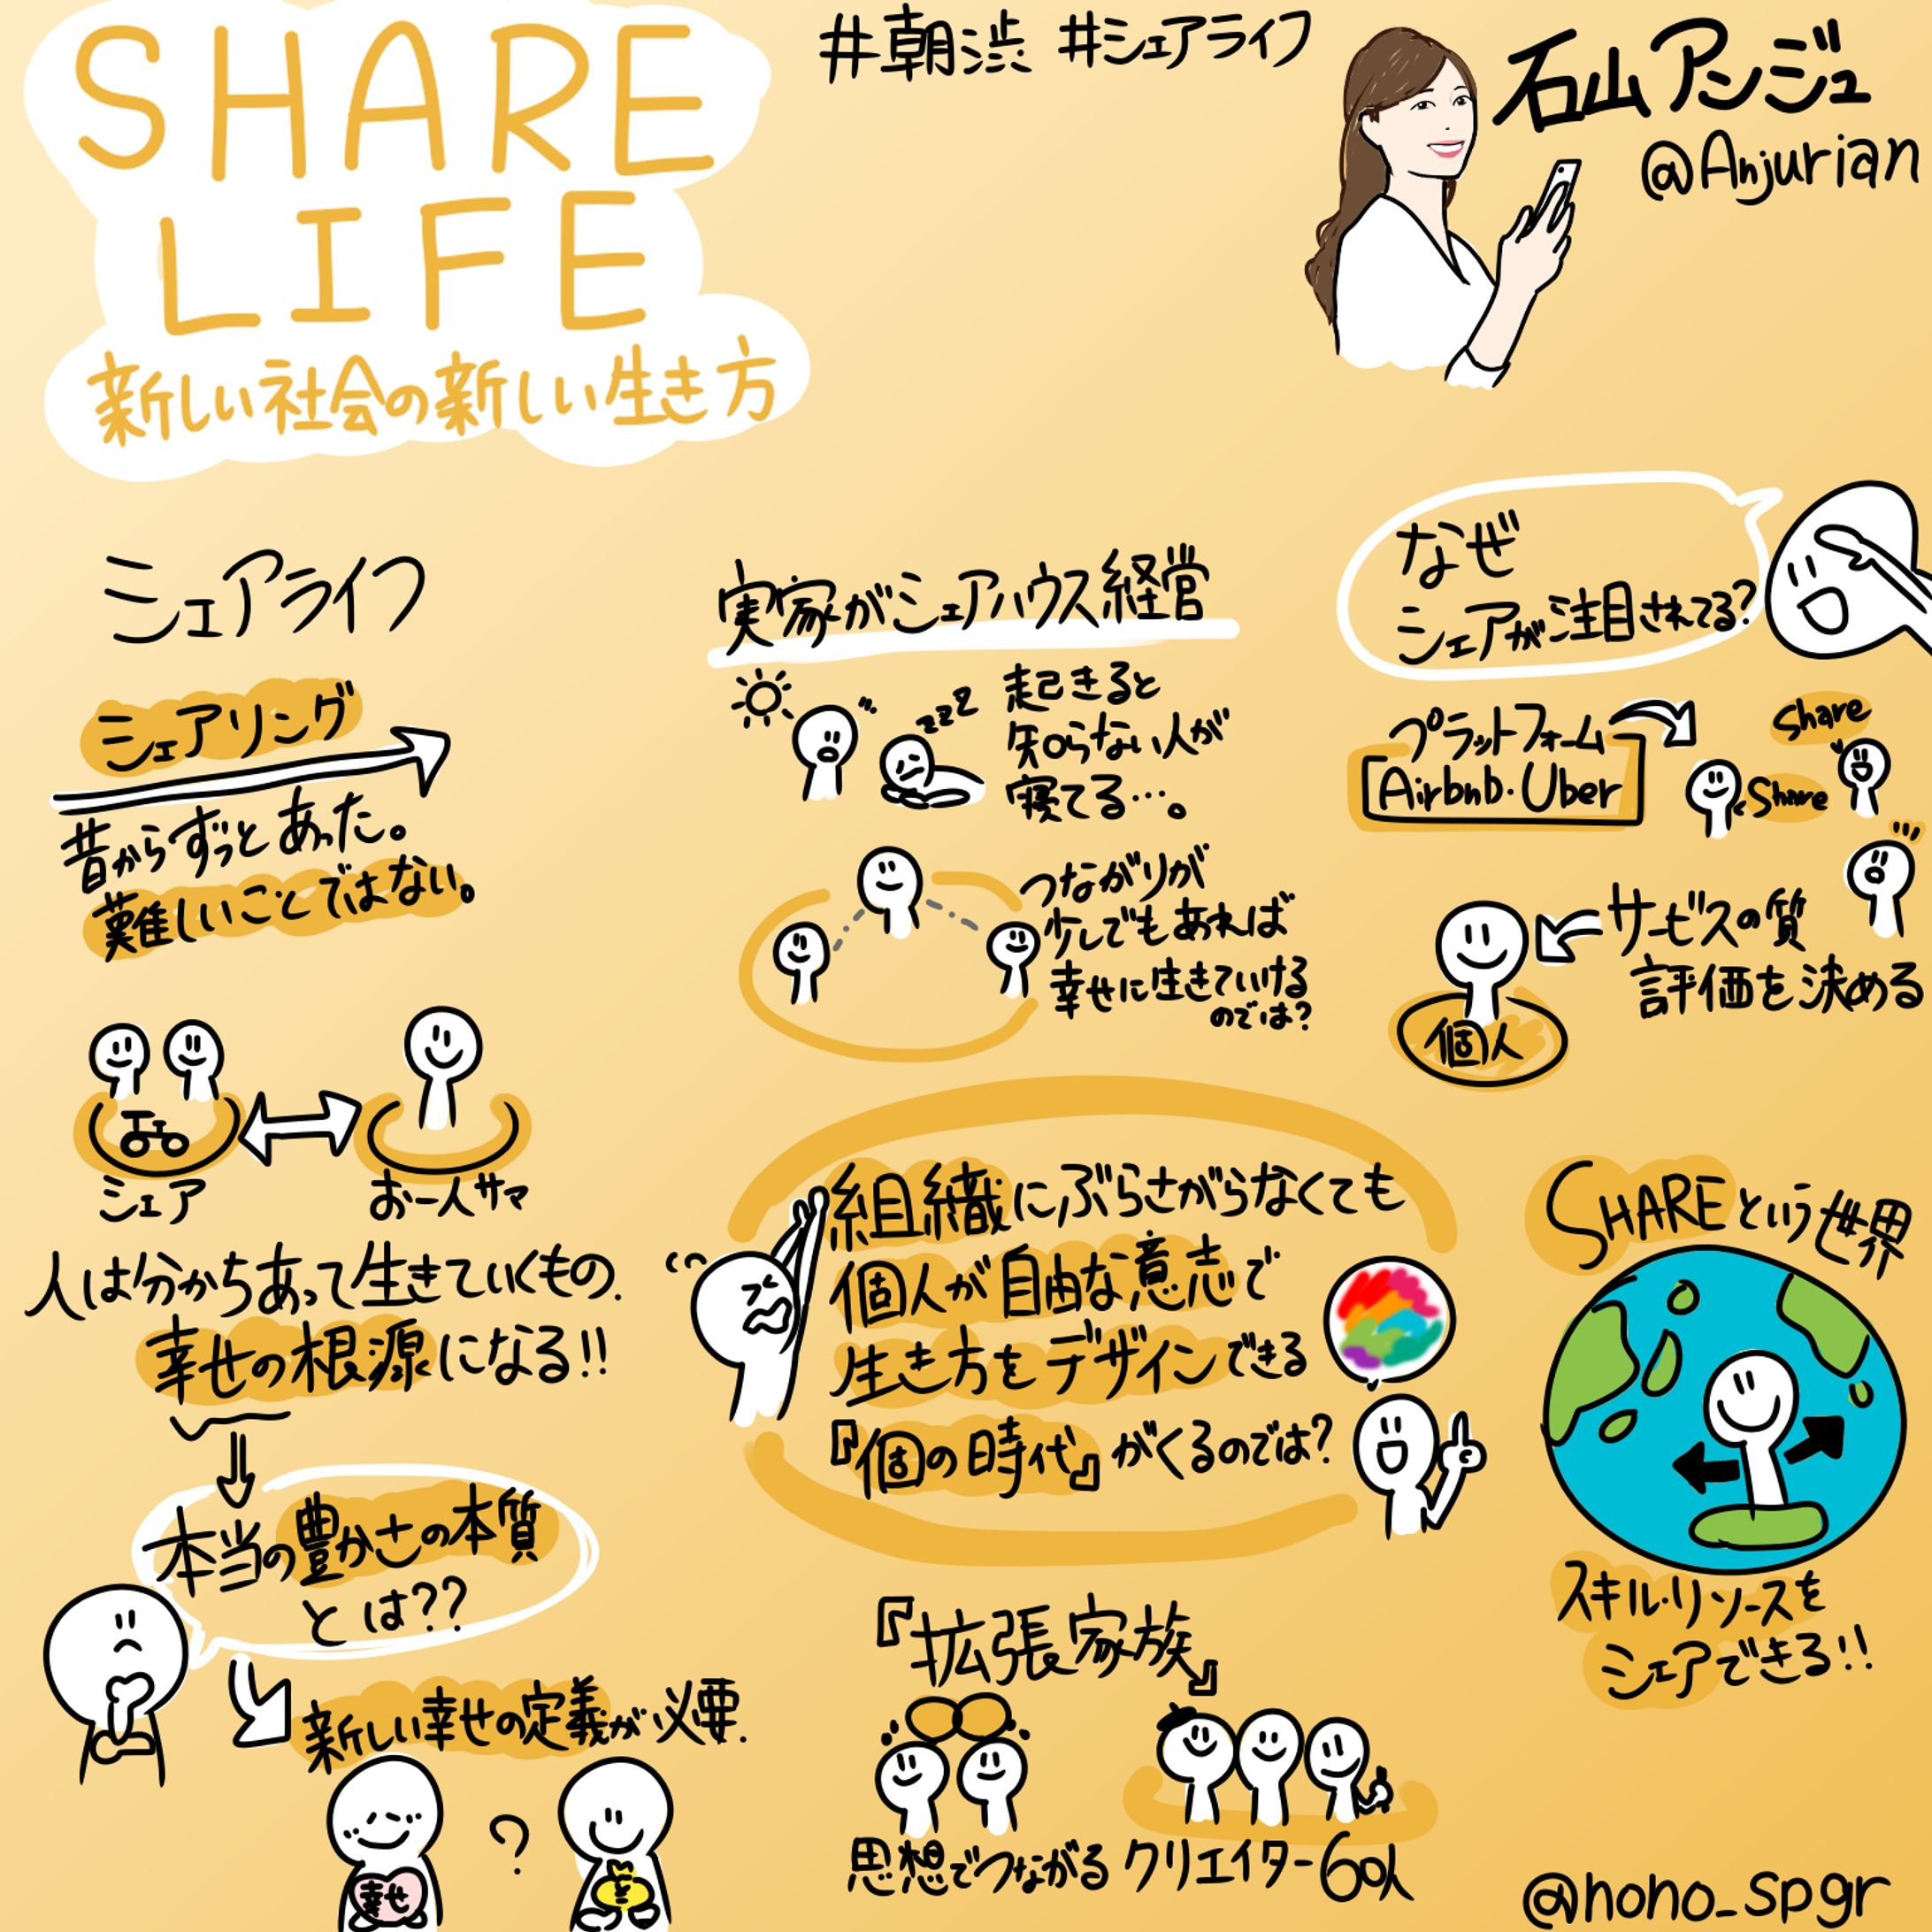 SHARE
LIFE
新しい社会の新しい生き方
#朝渋 #シェアライフ
石山アンジュ
@Anjurian
シェアライフ
シェアリング
昔からずっとあった。
難しいことではない。
シェア
お一人サマ
人は分かちあって生きていくもの.
幸せの根源になる!!
本当の豊かさの本質
とは??
新しい幸せの定義が必要.
幸せ
?
実家がシェアハウス経営
zzz
起きると
知らない人が
寝てる…。
つながりが
少しでもあれば
幸せに生きていける
のでは?
組織にぶらさがらなくても
個人が自由な意志で
生き方をデザインできる
『個の時代』がくるのでは?
『拡張家族』
思想でつながる クリエイター60人
なぜ
シェアが注目されてる?
プラットフォーム
Airbnb・Uber
Share
Share
サービスの質
評価を決める
個人
SHAREという世界
スキル・リソースを
シェアできる!!
@nono_spgr